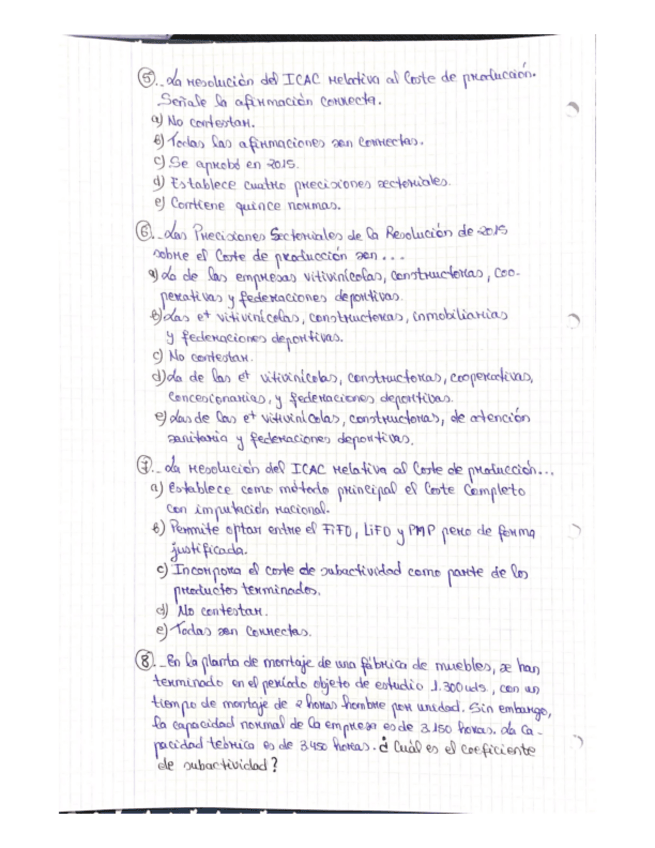 ⑤.. La resolución del ICAC relativa al Coste de producción.
Señale la afirmación correcta.
a) No contestar.
b) Todas las afirmaciones son correctas.
c) Se aprobó en 2015.
d) Establece cuatro precisiones sectoriales.
e) Contiene quince normas.
⑥.. Las Precisiones Sectoriales de la Resolución de 2015
sobre el Coste de producción son...
a) La de las empresas vitivinícolas, constructoras, coo-
perativas y federaciones deportivas.
b) Las et vitivinícolas, constructoras, inmobiliarias
y federaciones deportivas.
c) No contestar.
d) La de las et vitivinícolas, constructoras, cooperativas,
concesionarias, y federaciones deportivas.
e) Las de las et vitivinícolas, constructoras, de atención
sanitaria y federaciones deportivas.
⑦.. La resolución del ICAC relativa al Coste de producción...
a) Establece como método principal el Coste Completo
con imputación racional.
b) Permite optar entre el FIFO, LIFO y PMP pero de forma
justificada.
c) Incorpora el coste de subactividad como parte de los
productos terminados.
d) No contestar.
e) Todas son correctas.
⑧.. En la planta de montaje de una fábrica de muebles, se han
terminado en el período objeto de estudio 1.300 uds, con un
tiempo de montaje de 2 horas hombre por unidad. Sin embargo,
la capacidad normal de la empresa es de 3.150 horas. La ca-
pacidad teórica es de 3.450 horas. ¿Cuál es el coeficiente
de subactividad?